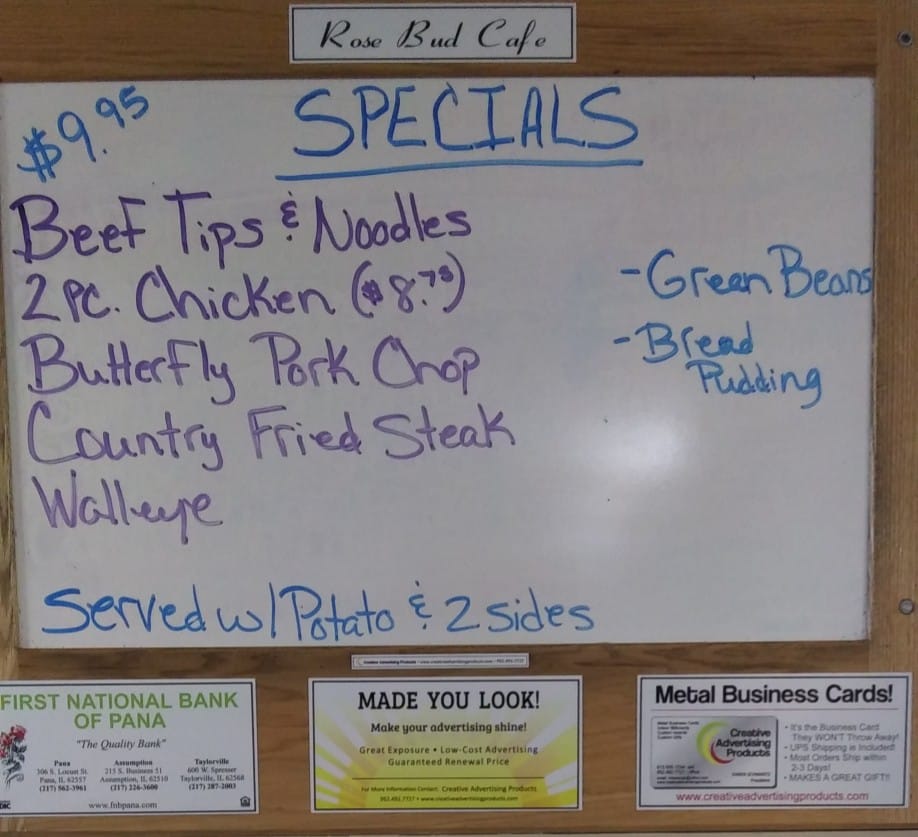 Rose Bud Cafe
$9.95
SPECIALS
Beef Tips & Noodles
2 pc. Chicken ($8.75)
Butterfly Pork Chop
Country Fried Steak
Walleye
- Green Beans
- Bread
Pudding
Served w/ Potato & 2 sides
FIRST NATIONAL BANK
OF PANA
"The Quality Bank"
Pana
306 S. Locust St.
Pana, IL 62557
(217) 562-3961
Assumption
215 S. Business 51
Assumption, IL 62510
(217) 226-3600
Taylorville
600 W. Spresser
Taylorville, IL 62568
(217) 287-2003
www.fnbpana.com
MADE YOU LOOK!
Make your advertising shine!
Great Exposure • Low-Cost Advertising
Guaranteed Renewal Price
For More Information Contact: Creative Advertising Products
952.492.7727 • www.creativeadvertisingproducts.com
Metal Business Cards!
Creative
Advertising
Products
• It's the Business Card
They WON'T Throw Away!
• UPS Shipping is Included!
• Most Orders Ship within
2-3 Days!
• MAKES A GREAT GIFT!!
www.creativeadvertisingproducts.com